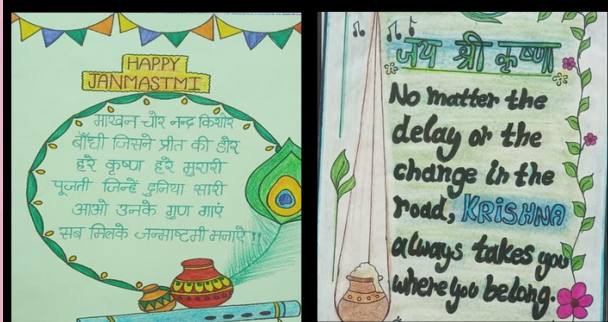 HAPPY
JANMASTMI
माखन चोर नन्द किशोर
बाँधी जिसने प्रीत की डोर
हरे कृष्ण हरे मुरारी
पूजती जिन्हें दुनिया सारी
आओ उनके गुण गाएं
सब मिलके जन्माष्टमी मनाऐं !!
जय श्री कृष्णा
No matter the
delay or the
change in the
road, KRISHNA
always takes you
where you belong.